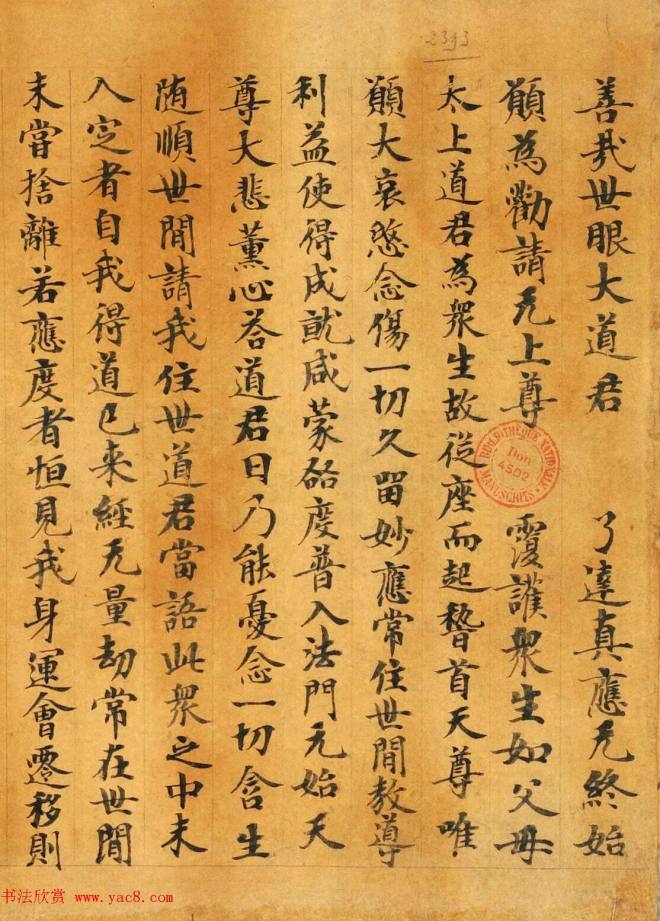 2393
善哉世眼大道君 了達真應无終始
願為勸請无上尊 覆護衆生如父母
太上道君為衆生故從座而起稽首天尊唯
願大哀愍念傷一切久留妙應常住世間教導
利益使得成就咸蒙啓度普入法門元始天
尊大悲薰心荅道君曰乃能憂念一切含生
随順世間請我住世道君當語此衆之中未
入定者自我得道已来經无量劫常在世間
未嘗捨離若應度者恒見我身運會遷移則
BIBLIOTHÈQUE NATIONALE
Don
4502
MANUSCRITS
书法欣赏 www.yac8.com